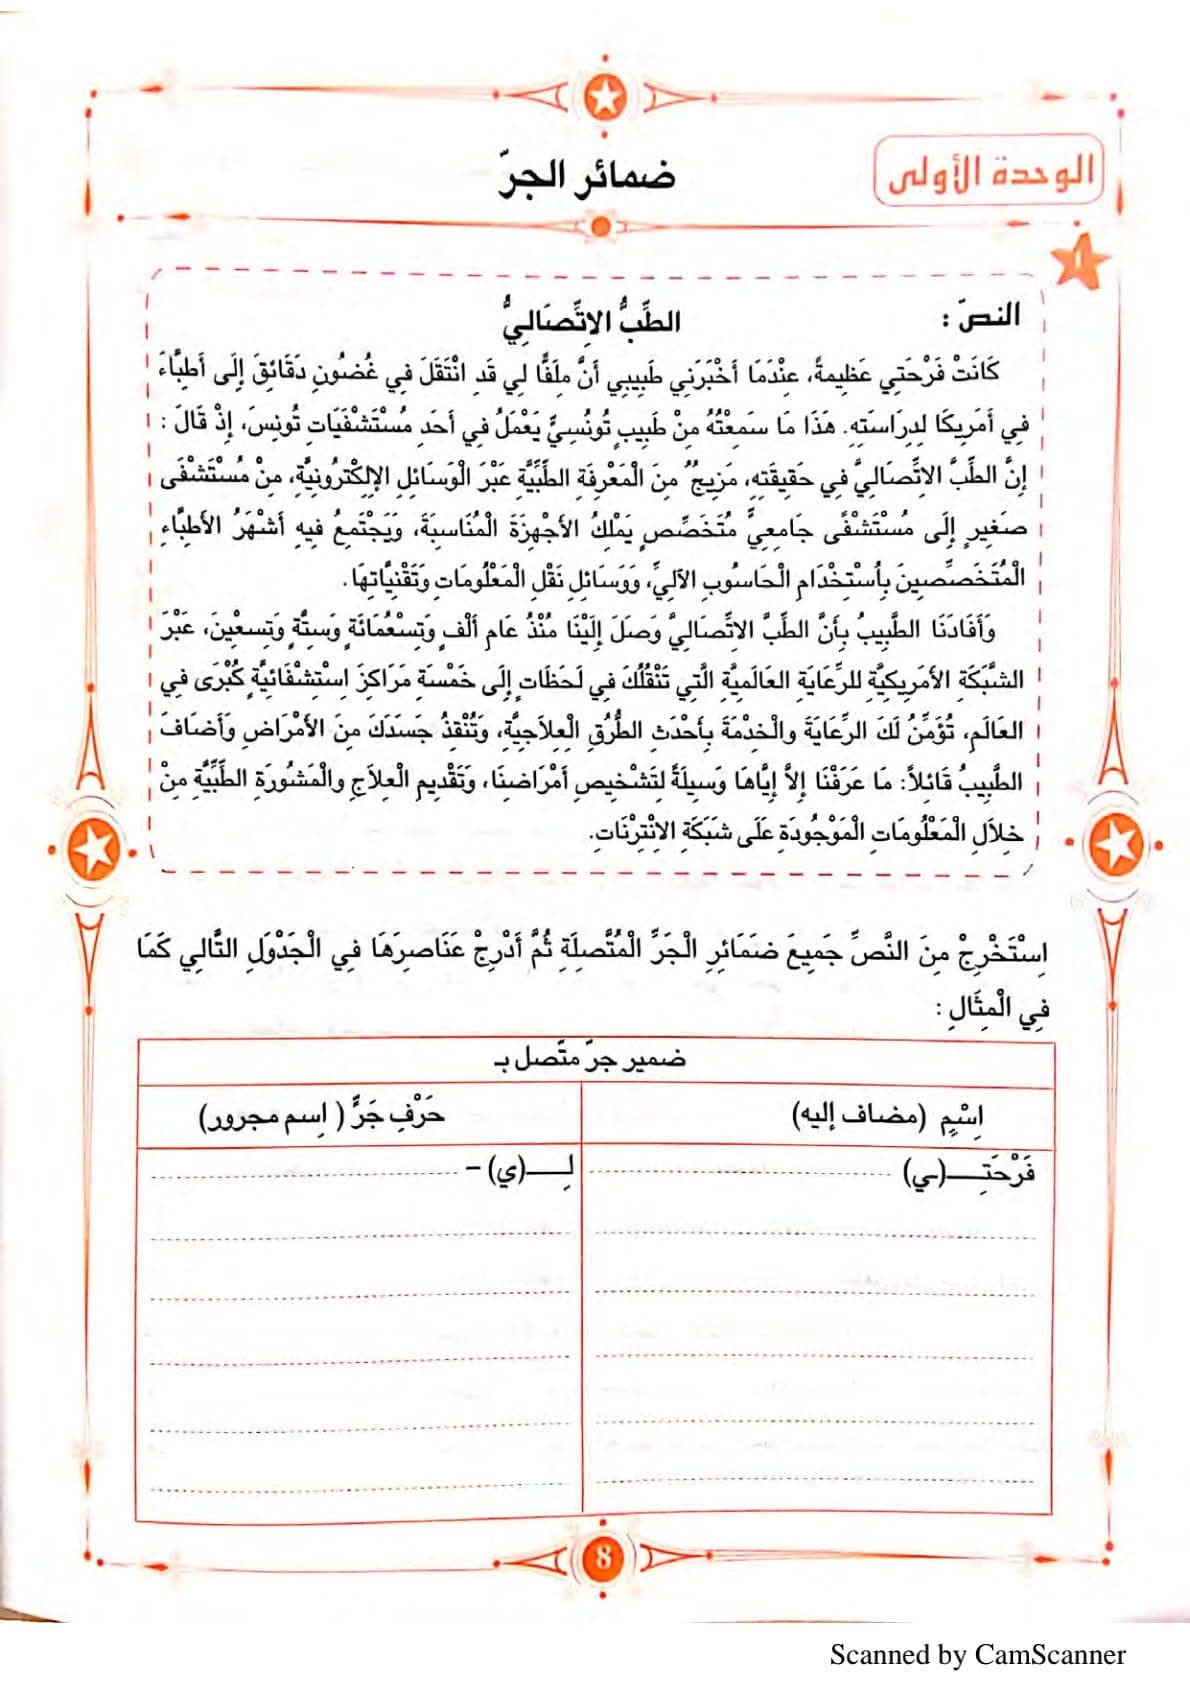 الوحدة الأولى
ضمائر الجرّ
١
النصّ : الطِّبُّ الاِتِّصَالِيُّ
كَانَتْ فَرْحَتِي عَظِيمةً، عِنْدَمَا أَخْبَرَنِي طَبِيبِي أَنَّ مِلَفًّا لِي قَدِ انْتَقَلَ فِي غُضُونِ دَقَائِقَ إِلَى أَطِبَّاءَ
فِي أَمَرِيكَا لِدِرَاسَتِهِ. هَذَا مَا سَمِعْتُهُ مِنْ طَبِيبٍ تُونُسِيٍّ يَعْمَلُ فِي أَحَدِ مُسْتَشْفَيَاتِ تُونِسَ، إِذْ قَالَ :
إِنَّ الطِّبَّ الاِتِّصَالِيَّ فِي حَقِيقَتِهِ، مَزِيجٌ مِنَ الْمَعْرِفَةِ الطِّبِّيَّةِ عَبْرَ الْوَسَائِلِ الإِلِكْتْرُونِيَّةِ، مِنْ مُسْتَشْفَى
صَغِيرٍ إِلَى مُسْتَشْفًى جَامِعِيٍّ مُتَخَصِّصٍ يَمْلِكُ الأَجْهِزَةَ الْمُنَاسِبَةَ، وَيَجْتَمِعُ فِيهِ أَشْهَرُ الأَطِبَّاءِ
الْمُتَخَصِّصِينَ بِاُسْتِخْدَامِ الْحَاسُوبِ الآلِيِّ، وَوَسَائِلِ نَقْلِ الْمَعْلُومَاتِ وَتَقْنِيَّاتِهَا.
وَأَفَادَنَا الطَّبِيبُ بِأَنَّ الطِّبَّ الاِتِّصَالِيَّ وَصَلَ إِلَيْنَا مُنْذُ عَامِ أَلْفٍ وَتِسْعُمَائَةٍ وَسِتَّةٍ وَتِسعِينَ، عَبْرَ
الشَّبَكَةِ الأَمَرِيكِيَّةِ لِلرِّعَايَةِ العَالَمِيَّةِ الَّتِي تَنْقُلُكَ فِي لَحَظَاتٍ إِلَى خَمْسَةِ مَرَاكِزَ اِسْتِشْفَائِيَّةٍ كُبْرَى فِي
العَالَمِ، تُؤَمِّنُ لَكَ الرِّعَايَةَ والْخِدْمَةَ بِأَحْدَثِ الطُّرُقِ الْعِلاَجِيَّةِ، وَتُنْقِذُ جَسَدَكَ مِنَ الأَمْرَاضِ وَأَضَافَ
الطَّبِيبُ قَائِلاً: مَا عَرَفْنَا إِلاَّ إِيَّاهَا وَسِيلَةً لِتَشْخِيصِ أَمْرَاضِنَا، وَتَقْدِيمِ الْعِلاَجِ والْمَشُورَةِ الطِّبِّيَّةِ مِنْ
خِلاَلِ الْمَعْلُومَاتِ الْمَوْجُودَةِ عَلَى شَبَكَةِ الاِنْتِرْنَاتِ.
اِسْتَخْرِجْ مِنَ النَّصِّ جَمِيعَ ضَمَائِرِ الْجَرِّ الْمُتَّصِلَةِ ثُمَّ أَدْرِجْ عَنَاصِرَهَا فِي الْجَدْوَلِ التَّالِي كَمَا
فِي الْمِثَالِ :
ضمير جرّ متّصل بـ
اِسْمٍ (مضاف إليه) حَرْفِ جَرٍّ ( اِسم مجرور)
فَرْحَتِـــ(ـي) لِــــ(ي) –
8
Scanned by CamScanner